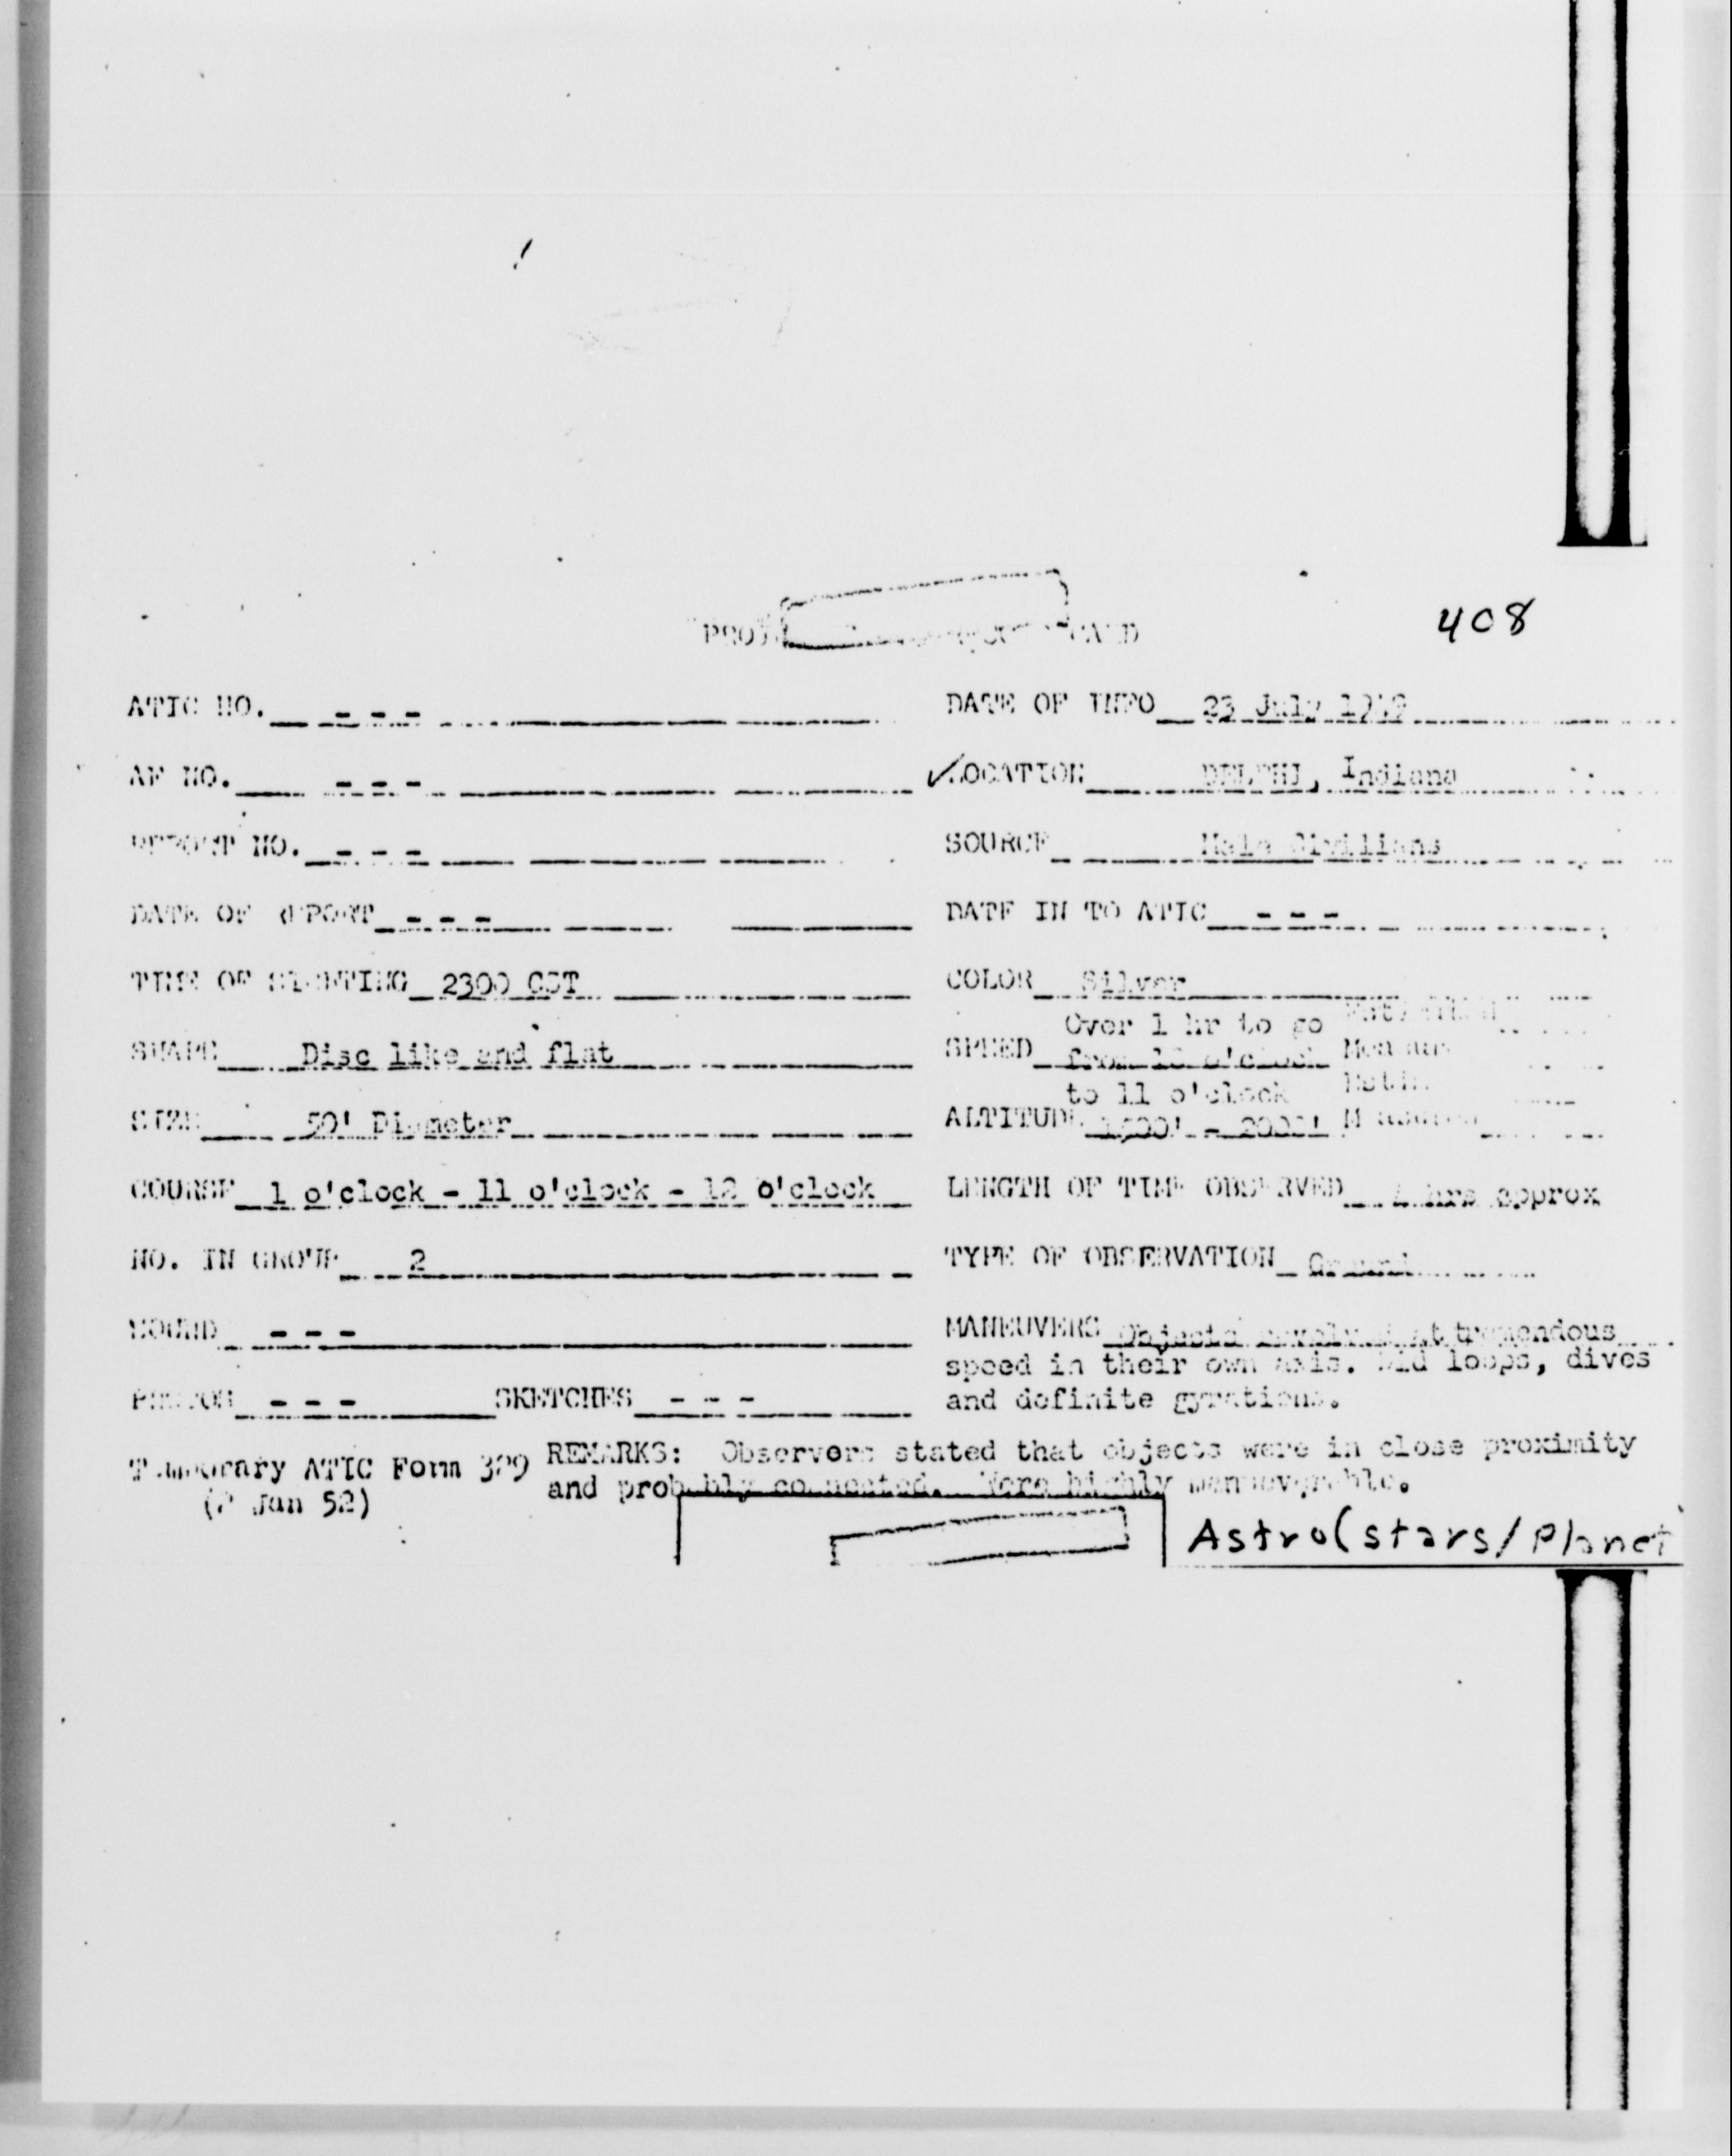 408
ATIC NO. - - - DATE OF INFO 23 July
AF NO. - - - ✓LOCATION DELPHI, Indiana
REPORT NO. - - - SOURCE Male Civilians
DATE OF REPORT - - - DATE IN TO ATIC - - -
TIME OF SIGHTING 2300 CST COLOR Silver
SHAPE Disc like and flat SPEED Over 1 hr to go
from o'clock
to 11 o'clock
SIZE 50' Diameter ALTITUDE
COURSE 1 o'clock - 11 o'clock - 12 o'clock LENGTH OF TIME OBSERVED hrs approx
NO. IN GROUP 2 TYPE OF OBSERVATION Ground
SOUND - - - MANEUVERS Objects at tremendous
speed in their own axis. Did loops, dives
and definite gyrations.
PHOTOS - - - SKETCHES - - -
Temporary ATIC Form 329 REMARKS: Observers stated that objects were in close proximity
and probably connected. Were highly maneuverable.
Jan 52)
Astro(stars/Planet